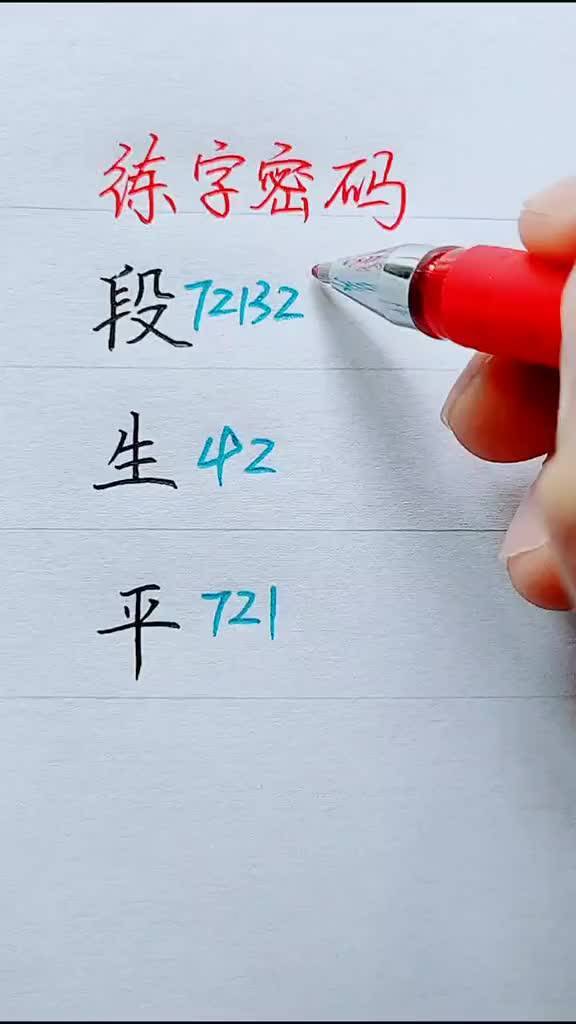 练字密码
段72132
生 42
平 721